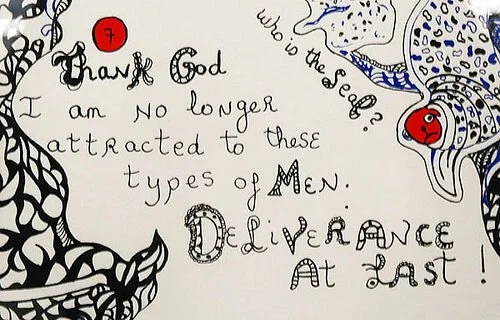 7
who is the Seal?
Thank God
I am No longer
attracted to these
types of Men.
Deliverance
At Last!